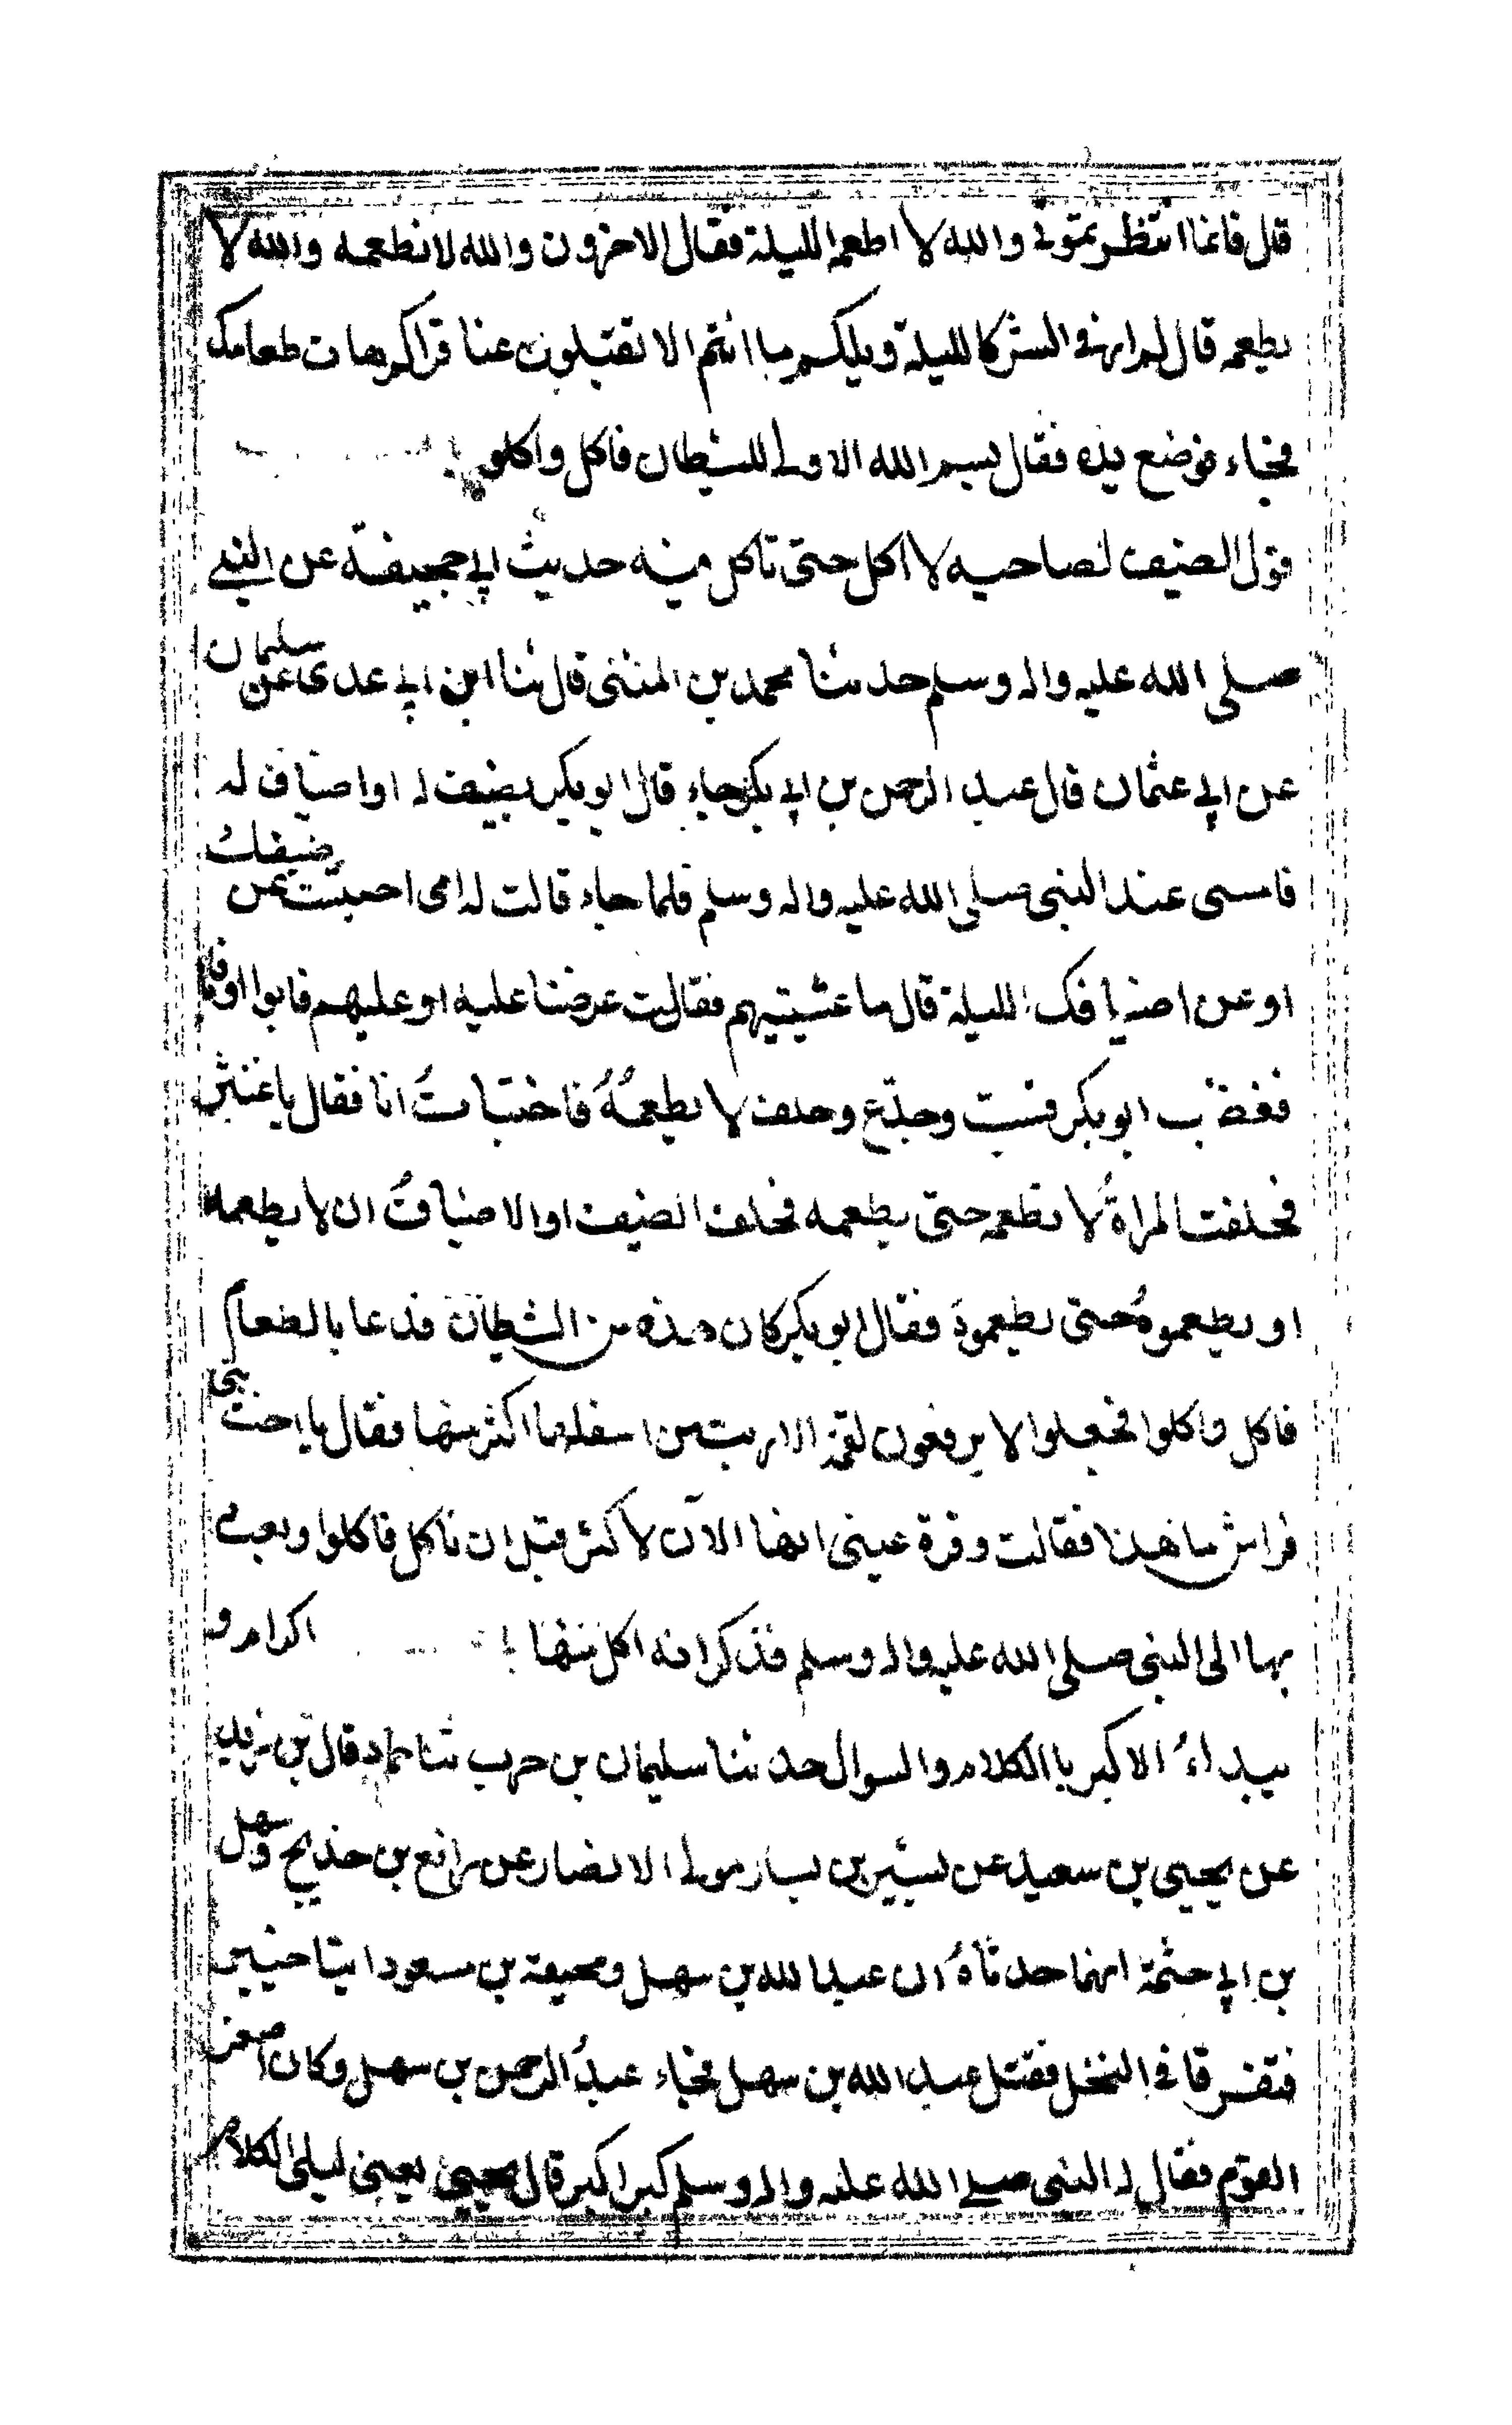 قال فانما انتظرتموني والله لا اطعمه الليلة فقال الاخرون والله لا نطعمه والله لا
يطعمه قال لم ار في الشر كالليلة ويلكم ما انتم الا تقبلون عنا قراكم هات طعامك
فجاء فوضع يده فقال بسم الله الاولى للشيطان فاكل واكلو
قول الضيف لصاحبه لا اكل حتى تاكل فيه حديث ابي جحيفة عن النبي
صلى الله عليه واله وسلم حدثنا محمد بن المثنى قال ثنا ابن ابي عدى عن سليمان
عن ابي عثمان قال عبد الرحمن بن ابي بكر جاء قال ابو بكر بضيف له او اضياف له
فامسى عند النبي صلى الله عليه واله وسلم فلما جاء قالت له امى احبست عن ضيفك
او عن اضيافك الليلة قال ما عشيتيهم فقالت عرضنا عليه او عليهم فابوا او فابى
فغضب ابو بكر فسب وجدّع وحلف لا يطعمُهُ فاختبات انا فقال يا غنثر
فحلفت المراةُ لا تطعمه حتى يطعمه فحلف الضيف او الاضيافُ ان لا يطعمه
او يطعموهُ حتى يطعموهُ فقال ابو بكر كان هذه من الشيطان فدعا بالطعام
فاكل واكلوا فجعلوا لا يرفعون لقمة الا ربت من اسفلها اكثر منها فقال يا اخت بنى
فراس ما هذا فقالت وقرة عينى انها الآن لاكثر قبل ان ناكل فاكلوا وبعث
بها الى النبي صلى الله عليه واله وسلم فذكر انه اكل منها اكرام و
يبداءُ الاكبر بالكلام والسوال حدثنا سليمان بن حرب ثنا حماد قال بن زيد
عن يحيى بن سعيد عن بشير بن يسار مولى الانصار عن رافع بن خديج وسهل
بن ابي حثمة انهما حدثاهُ ان عبد الله بن سهل ومحيصة بن مسعود اتيا خيبر
فتفرقا في النخل فقتل عبد الله بن سهل فجاء عبدُ الرحمن بن سهل وكان اصغر
القوم فقال له النبي صلى الله عليه واله وسلم كبر الكبر قال يحيى يعنى ليلى الكلام